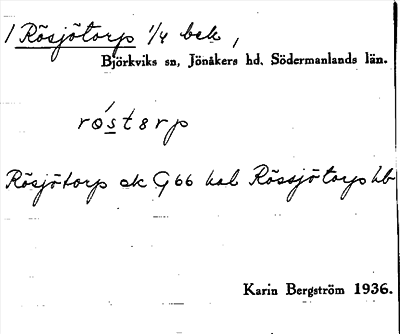 1 Rösjötorp 1/4 bek,
Björkviks sn, Jönåkers hd, Södermanlands län.
rö́stɵrp
Rösjötorp ek G 66 kal Rössjötorp hb
Karin Bergström 1936.